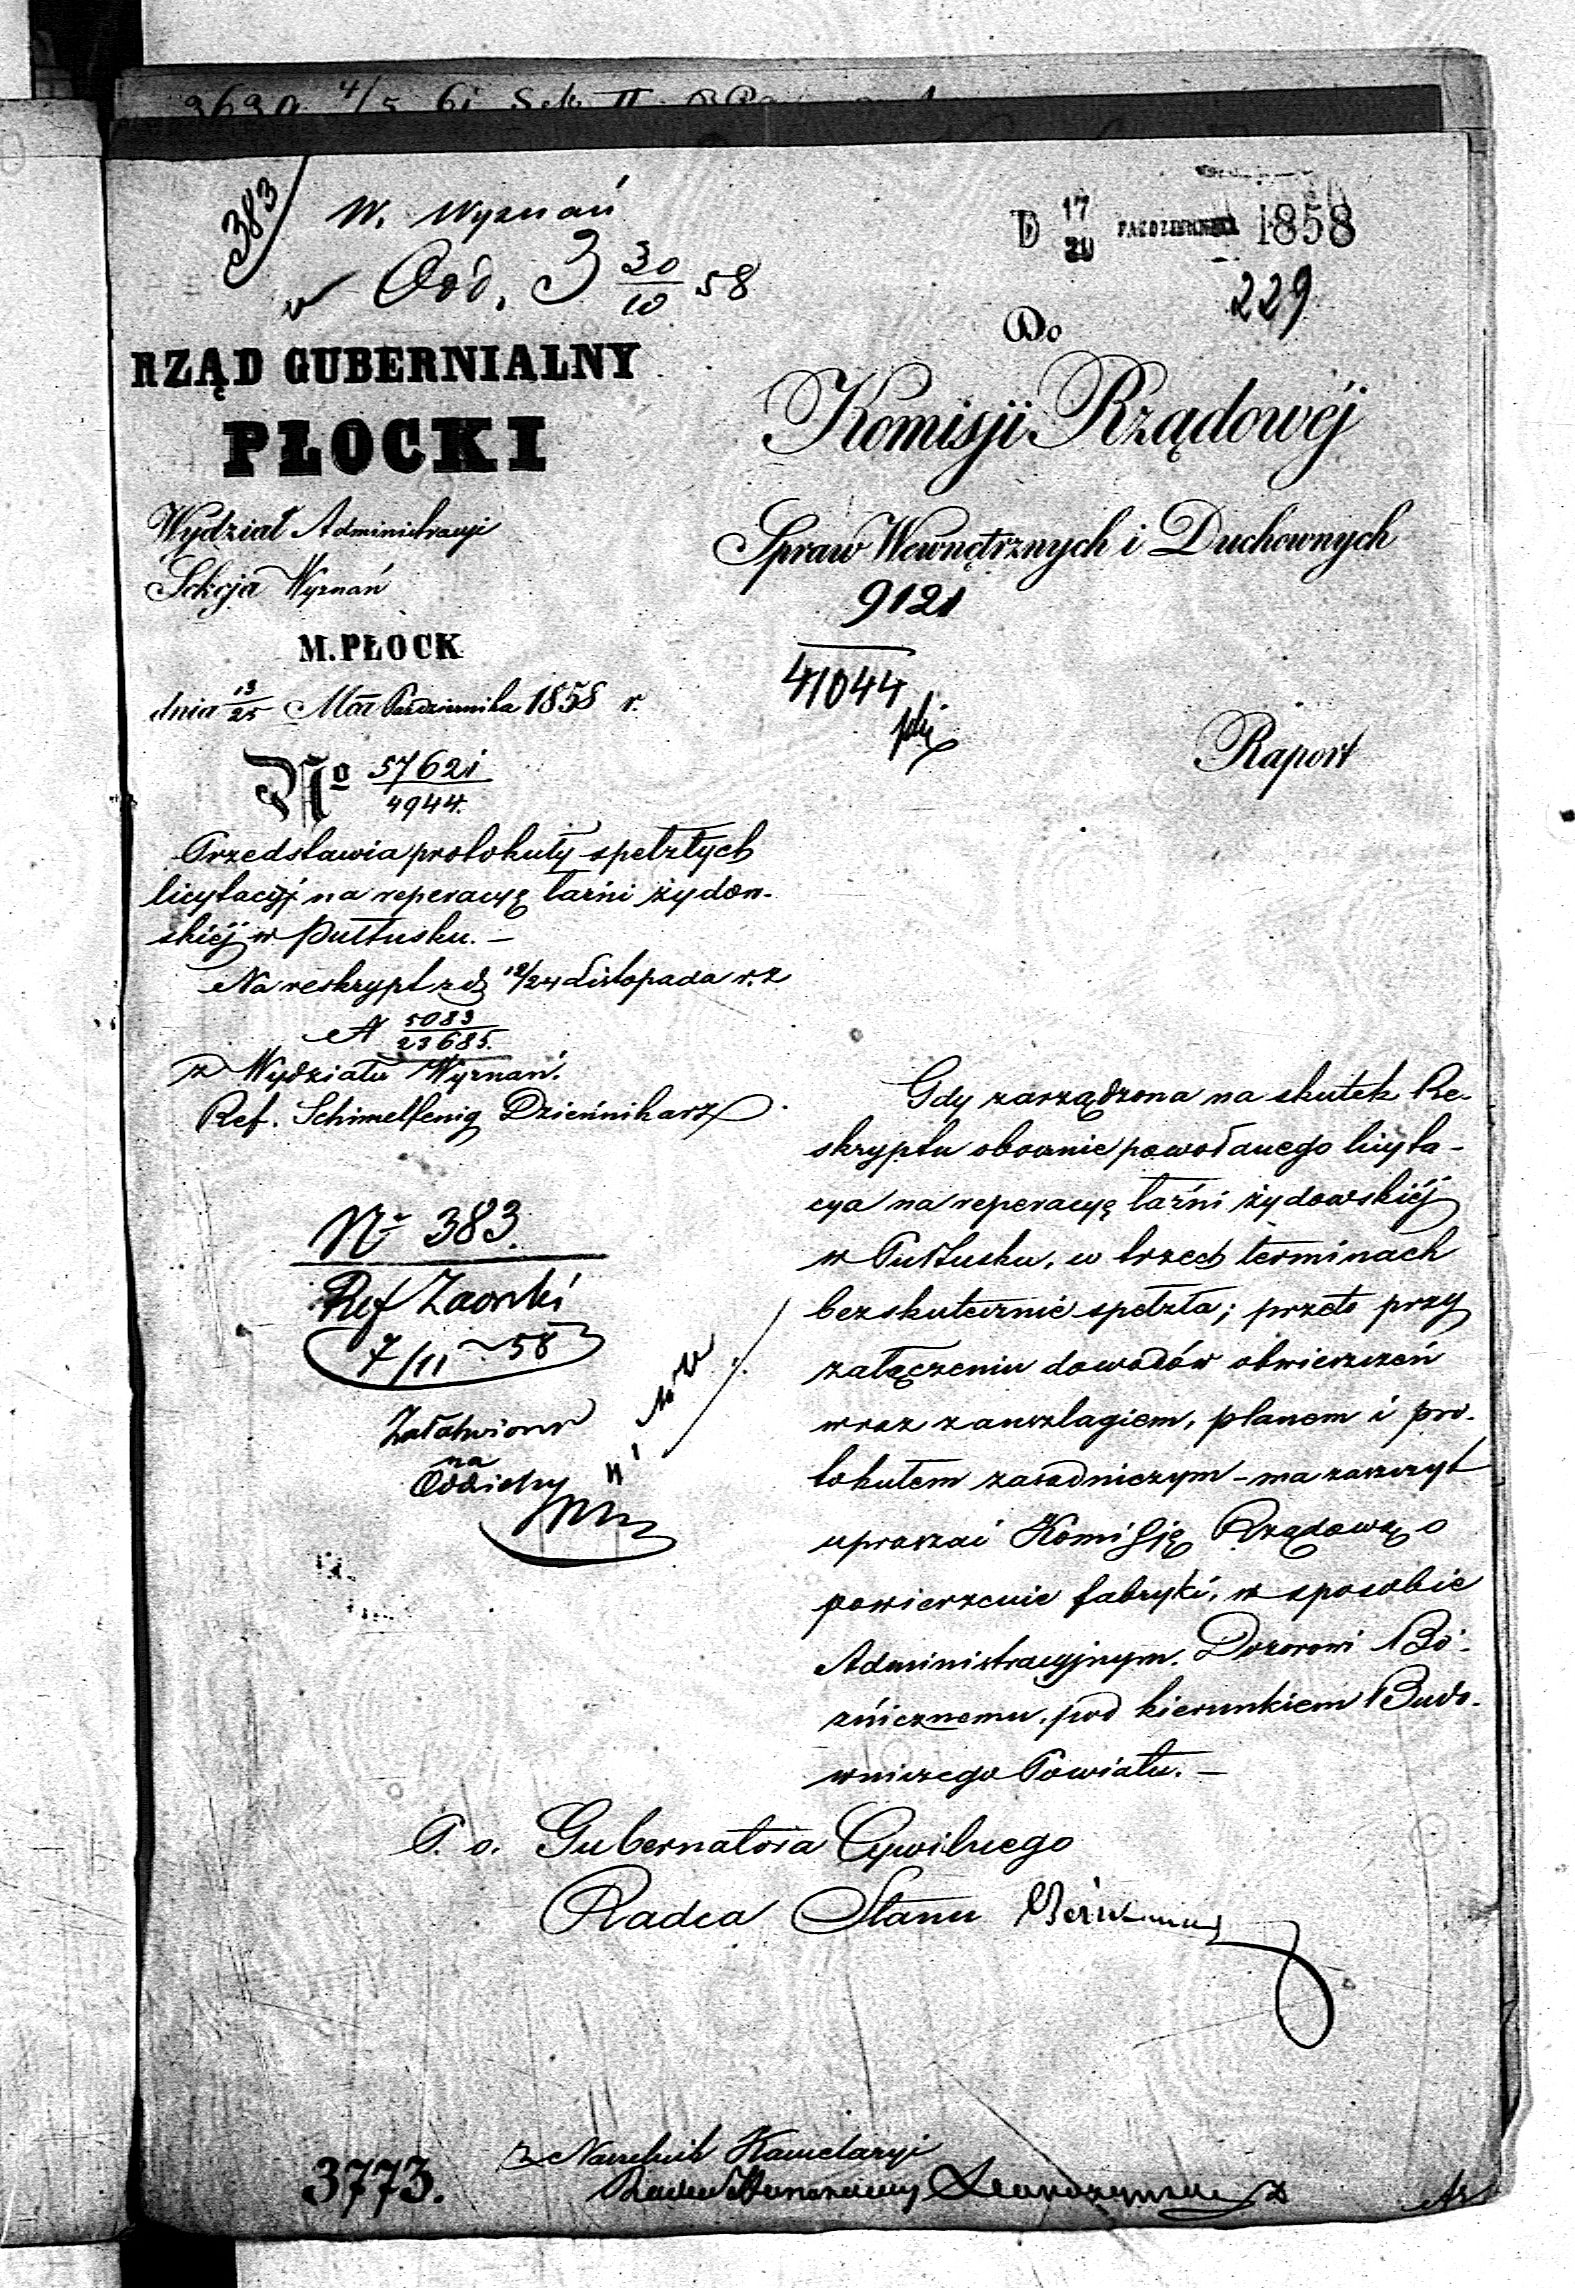 383
W. Wyznań
w Odd. 3 30/10 58
D 17/29 PAŹDZIERNIKA 1858
229
RZĄD GUBERNIALNY
PŁOCKI
Wydział Administracyi
Sekcja Wyznań
M. PŁOCK
dnia 13/25 Mca Października 1858 r.
No 57621/4944.
Przedstawia protokuły spełzłych
licytacyj na reperacyę łaźni żydow-
skiéj w Pułtusku. —
Na reskrypt z d. 12/24 Listopada r. z
N 5083/23685.
z Wydziału Wyznań.
Ref. Schimelfenig Dziennikarz
No 383.
Ref Zaorski
7/11 58
Załatwiono
na
Oddzielny
Do
Komisji Rządowéj
Spraw Wewnętrznych i Duchownych
9121
41044
Raport
Gdy zarządzona na skutek Re-
skryptu obocznie powołanego licyta-
cya na reperacyę łaźni żydowskiéj
w Pułtusku, w trzech terminach
bezskutecznie spełzła; przeto przy
załączeniu dowodów obwieszczeń
wraz z anszlagiem, planem i pro-
tokułem zasadniczym – ma zaszczyt
upraszać Komissję Rządową o
powierzenie fabryki, w sposobie
Administracyjnym. Dozorowi Bó-
żnicznemu, pod kierunkiem Budo-
wniczego Powiatu. —
P. o. Gubernatora Cywilnego
Radca Stanu
3773.
z Naczelnik Kancelaryi